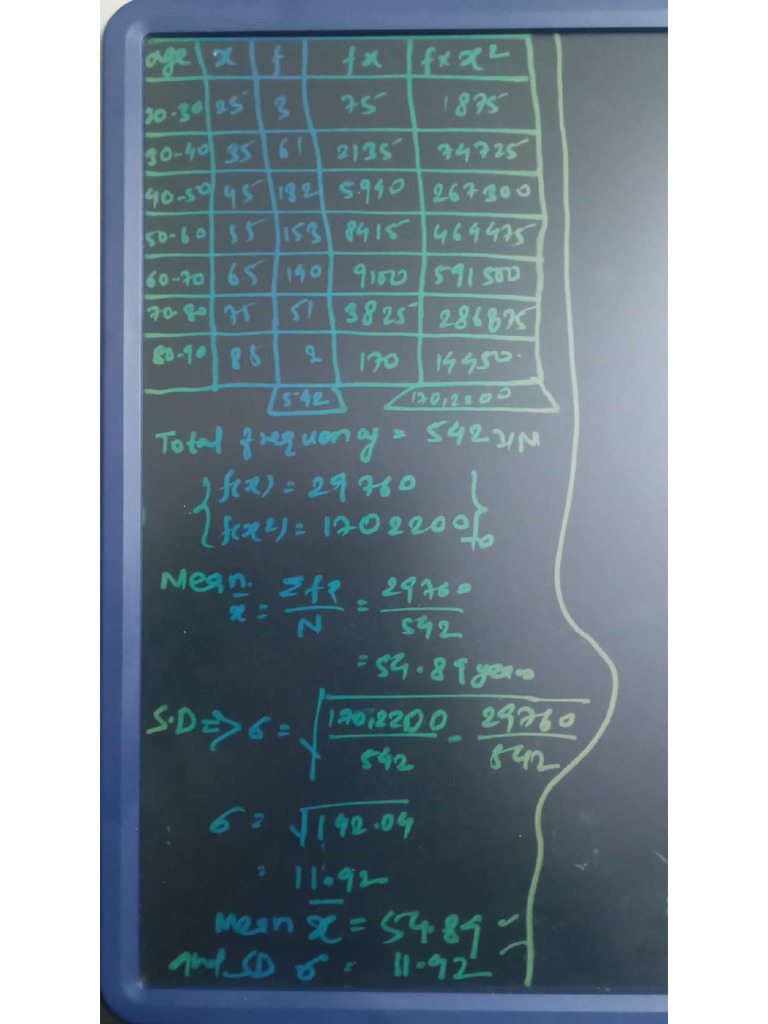 age x f fx f×x²
20-30 25 3 75 1875
30-40 35 61 2135 74725
40-50 45 132 5940 267300
50-60 55 153 8415 464475
60-70 65 140 9100 591500
70-80 75 51 3825 286875
80-90 85 2 170 14450.
542 170,2200
Total frequency = 542
f(x) = 29760
f(x2) = 1702200
Mean.
x̄ = Σfx/N = 29760/542
= 54.89 years
S.D => σ = √(170,2200/542 - 29760/542)
σ = √142.04
= 11.92
Mean x̄ = 54.89
and SD σ = 11.92